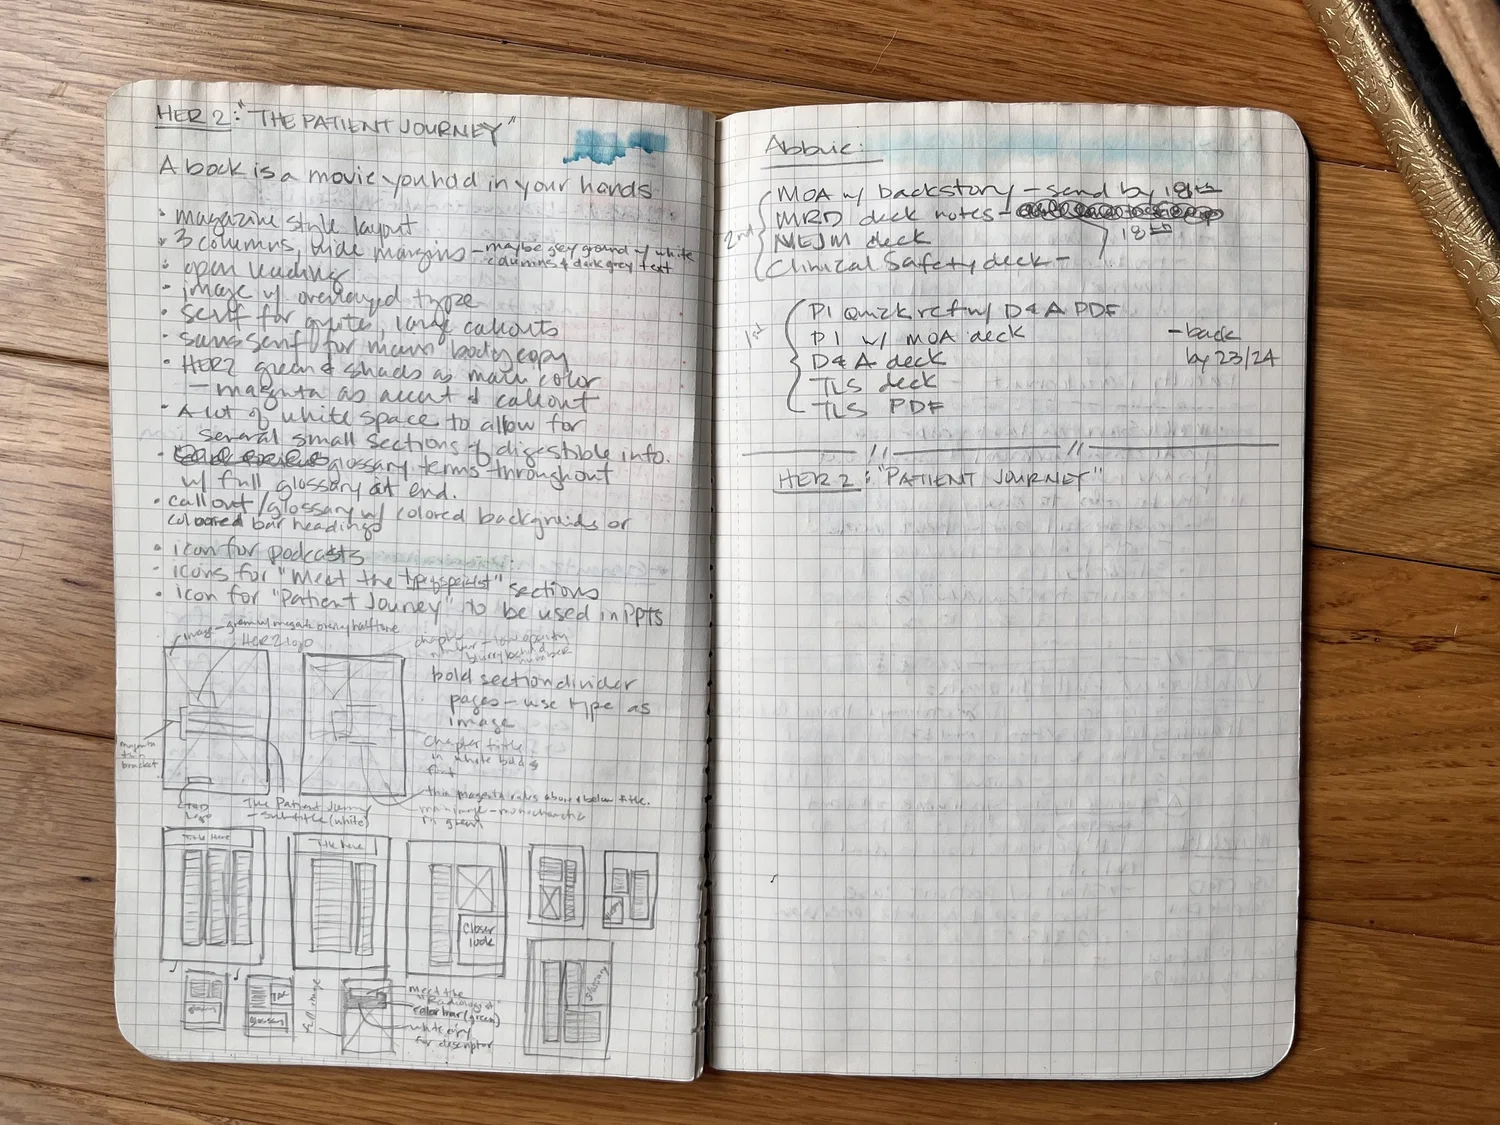 HER 2: "THE PATIENT JOURNEY"
A book is a movie you hold in your hands
• magazine style layout
• 3 columns, wide margins - maybe grey ground w/ white
columns & dark grey text
• open leading
• image w/ overlayed type
• serif for quotes, large callouts
• sans serif for main body copy
• HER2 green & shades as main color
- magenta as accent & callout
• A lot of white space to allow for
several small sections of digestible info.
• glossary terms throughout
w/ full glossary at end.
• callout/glossary w/ colored backgrounds or
colored bar headings
• icon for podcasts
• icons for "Meet the type of specialist" sections
• icon for "Patient Journey" to be used in ppts
image - green w/ magenta halftone
HER2 logo
chapter number - low opacity
blurry behind
number
bold section divider
pages - use type as
image
magenta
thin
bracket
chapter title
in white bold
font
thin magenta rules above & below title.
- monochromatic
in green
logo
The Patient Journey
- subtitle (white)
Title Here
Title here
closer
look
glossary
glossary
full image
meet the
"Radiologist"
color bar (green)
white copy
for descriptor
glossary
Abbvie:
2nd
MOA w/ backstory - send by 18th
MRD deck notes -
18th
NEJM deck
Clinical Safety deck -
1st
PI Quick ref w/ D&A PDF
PI w/ MOA deck
D&A deck
TLS deck
TLS PDF
- back
by 23/24
HER 2: "PATIENT JOURNEY"